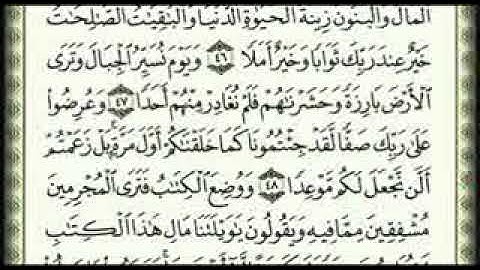 ٱلْمَالُ وَٱلْبَنُونَ زِينَةُ ٱلْحَيَوٰةِ ٱلدُّنْيَا وَٱلْبَٰقِيَٰتُ ٱلصَّٰلِحَٰتُ
خَيْرٌ عِندَ رَبِّكَ ثَوَابًا وَخَيْرٌ أَمَلًا ٤٦ وَيَوْمَ نُسَيِّرُ ٱلْجِبَالَ وَتَرَى
ٱلْأَرْضَ بَارِزَةً وَحَشَرْنَٰهُمْ فَلَمْ نُغَادِرْ مِنْهُمْ أَحَدًا ٤٧ وَعُرِضُوا۟
عَلَىٰ رَبِّكَ صَفًّا لَّقَدْ جِئْتُمُونَا كَمَا خَلَقْنَٰكُمْ أَوَّلَ مَرَّةٍۭ بَلْ زَعَمْتُمْ
أَلَّن نَّجْعَلَ لَكُم مَّوْعِدًا ٤٨ وَوُضِعَ ٱلْكِتَٰبُ فَتَرَى ٱلْمُجْرِمِينَ
مُشْفِقِينَ مِمَّا فِيهِ وَيَقُولُونَ يَٰوَيْلَتَنَا مَالِ هَٰذَا ٱلْكِتَٰبِ